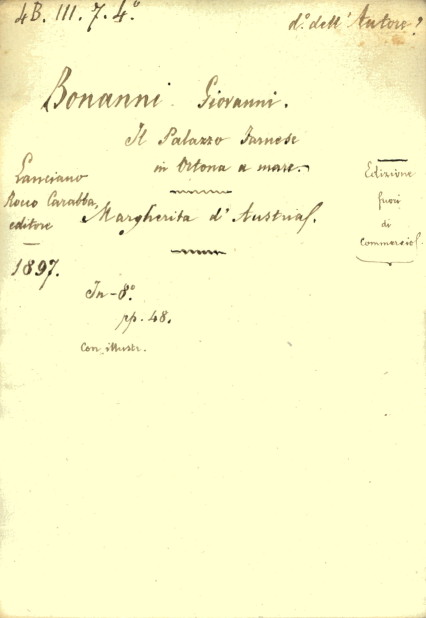 4B. III. 7. 4.º
d.º dell' Autore?
Bonanni Giovanni.
Il Palazzo Farnese
in Ortona a mare.
Lanciano
Rocco Carabba,
editore
Margherita d'Austria.
Edizione
fuori
di
Commercio.
1897.
In-8.º
pp. 48.
Con illustr.